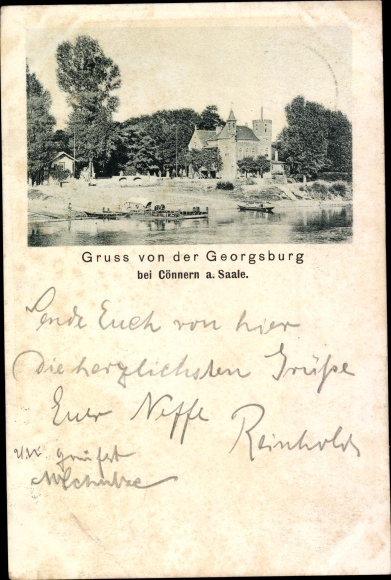 Gruss von der Georgsburg
bei Cönnern a. Saale.
Sende Euch von hier
die herzlichsten Grüße
Euer Neffe
Reinhold
grüßt